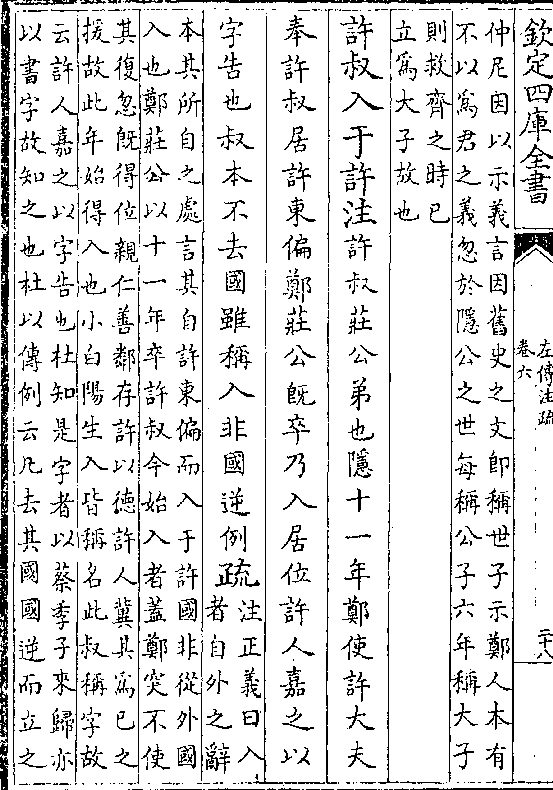 欽定四庫全書
左傳注疏
卷六
二十八
仲尼因以示義言因舊史之文即稱世子示鄭人本有
不以為君之義忽於隱公之世每稱公子六年稱大子
則救齊之時已
立為大子故也
許叔入于許注許叔莊公弟也隱十一年鄭使許大夫
奉許叔居許東偏鄭莊公既卒乃入居位許人嘉之以
字告也叔本不去國雖稱入非國逆例疏注正義曰入
者自外之辭
本其所自之處言其自許東偏而入于許國非從外國
入也鄭莊公以十一年卒許叔今始入者蓋鄭突不使
其復忽既得位親仁善鄰存許以德許人冀其為已之
援故此年始得入也小白陽生入皆稱名此叔稱字故
云許人嘉之以字告也杜知是字者以蔡季子來歸亦
以書字故知之也杜以傳例云凡去其國國逆而立之